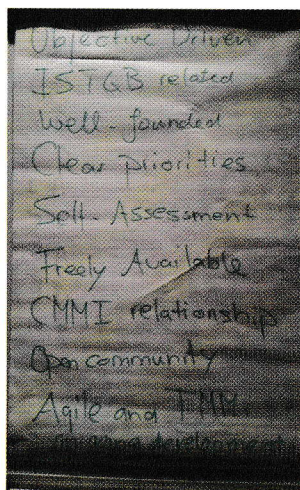 Objective Driven
ISTQB related
Well-founded
Clear priorities
Self-Assessment
Freely Available
CMMI relationship
Open community
Agile and TMMi
development